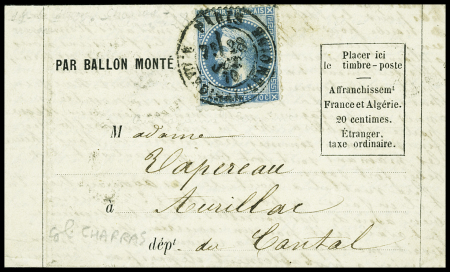 PARIS
70
PAR BALLON MONTÉ
Placer ici
le timbre-poste
Affranchissemt
France et Algérie.
20 centimes.
Étranger,
taxe ordinaire.
Madame
Vapereau
à Aurillac
dépt. du Cantal
CHARRAS